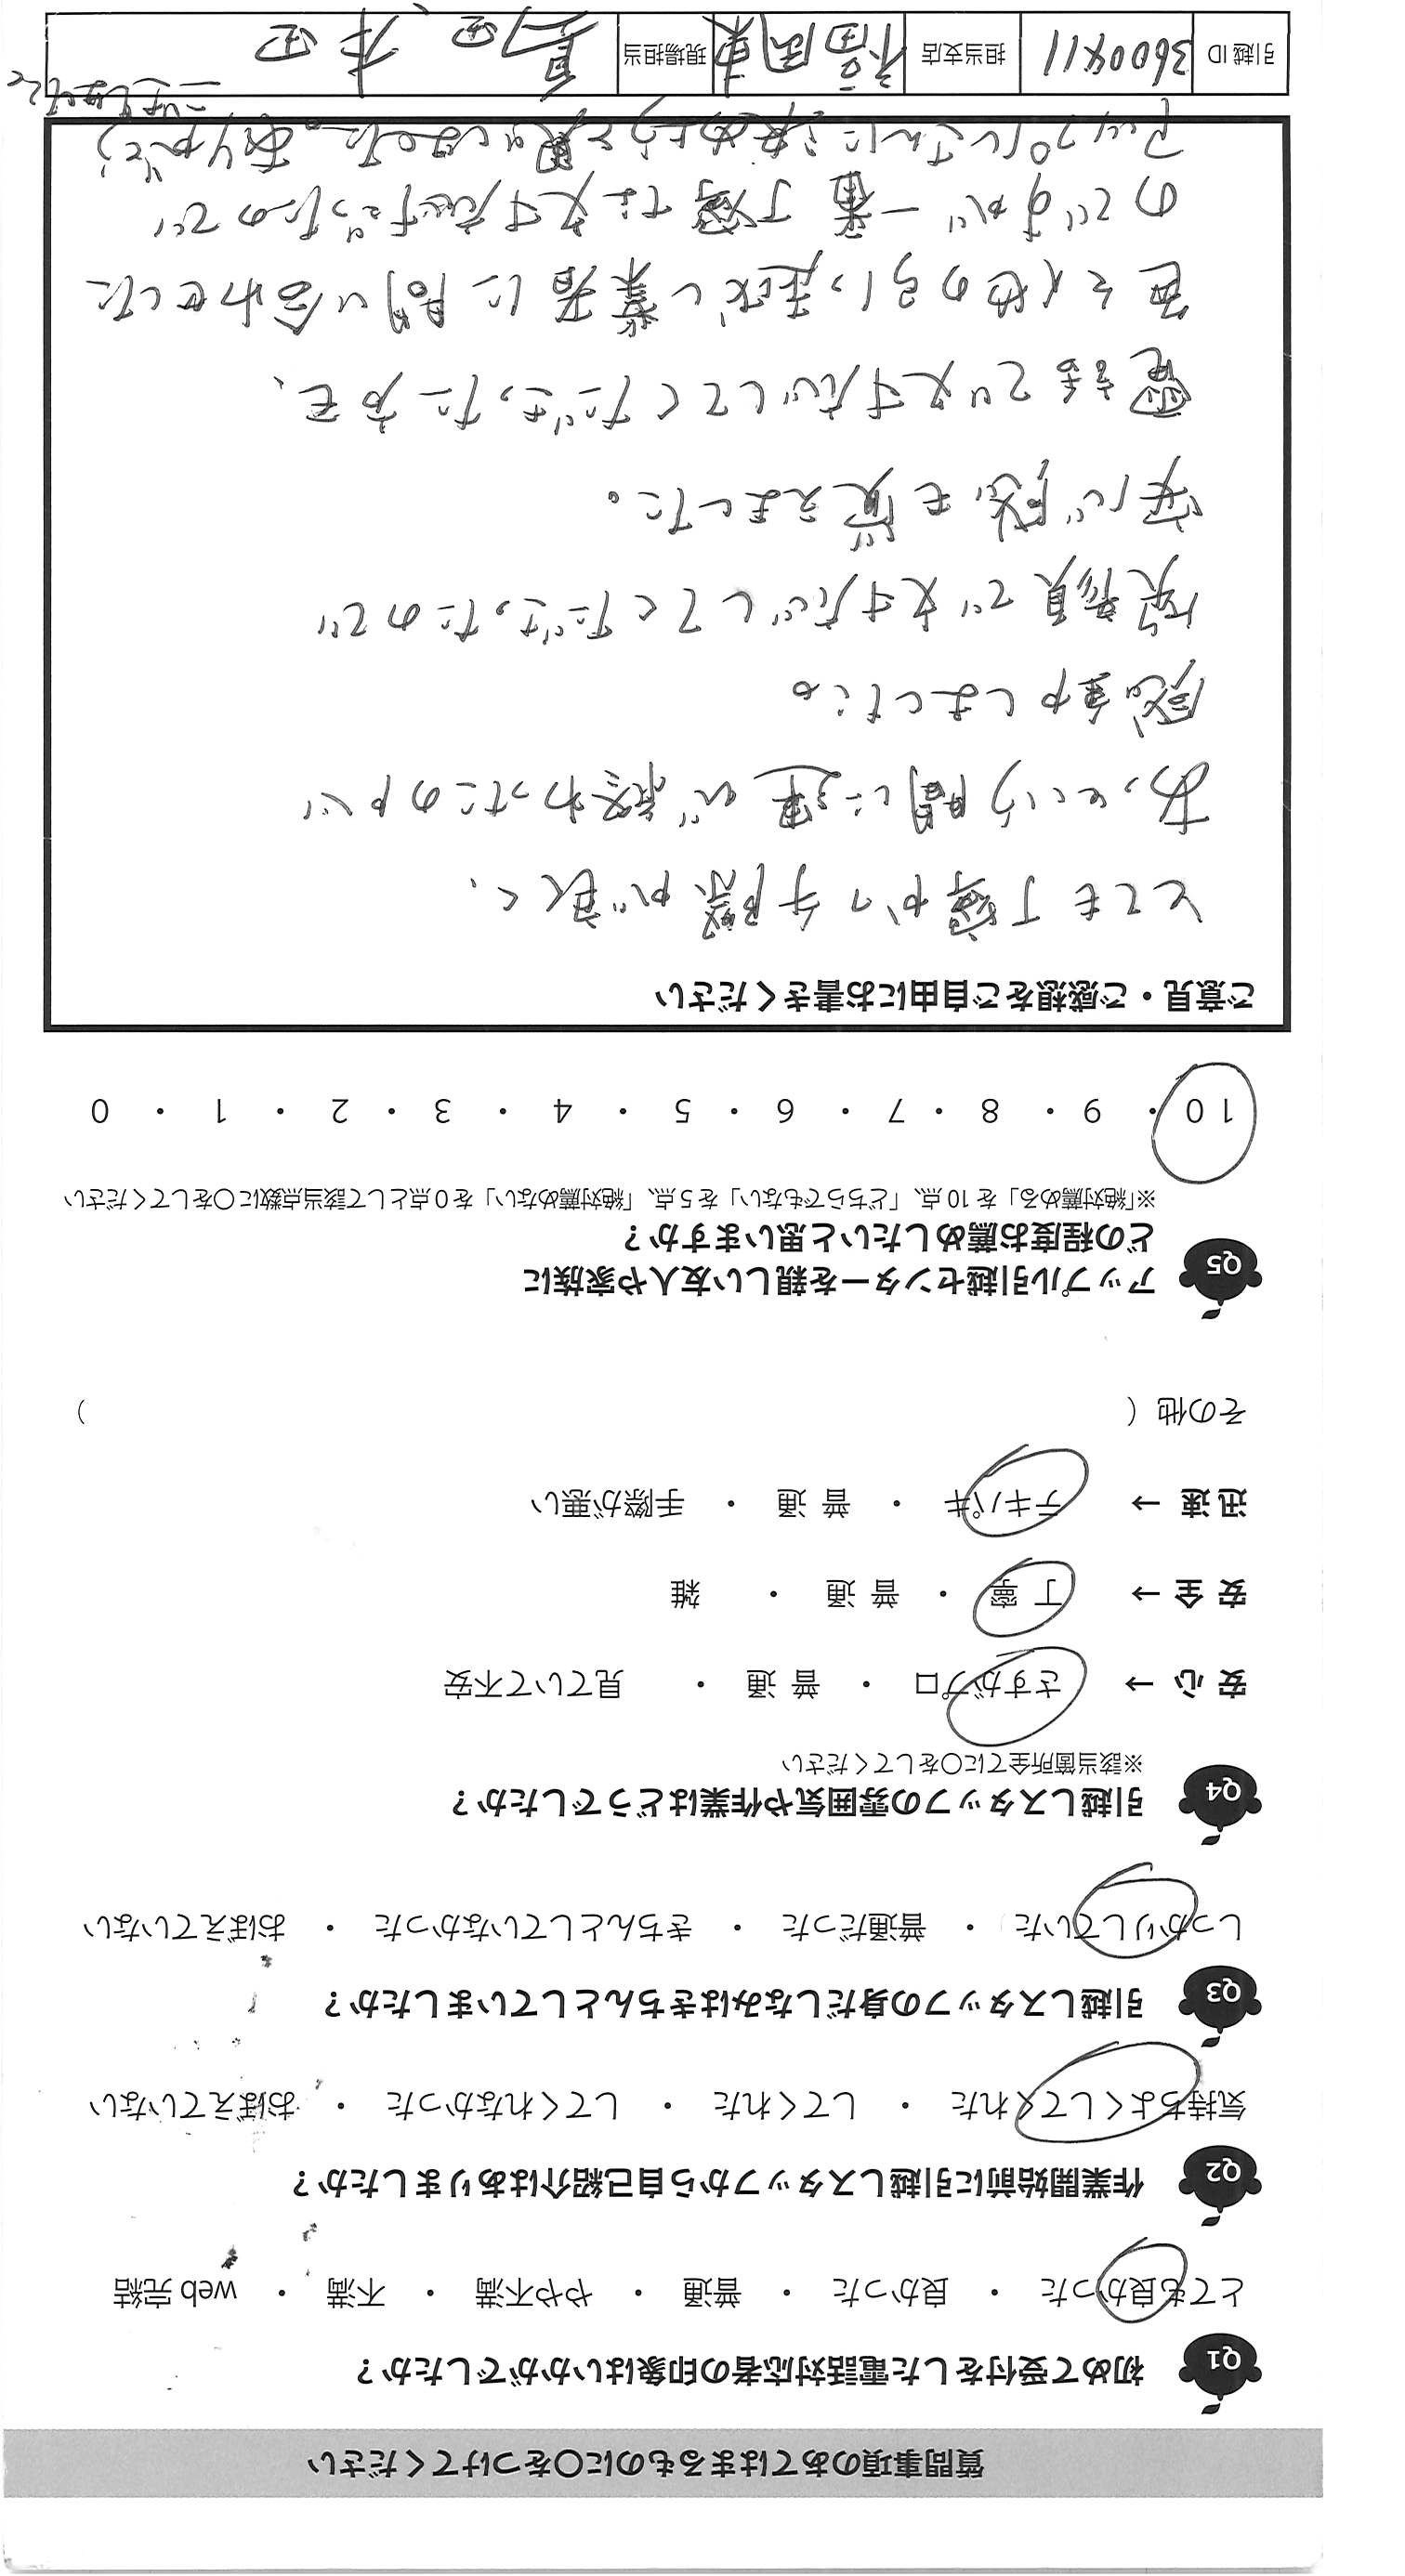 質問事項のあてはまるものに○をつけてください
Q1 初めて受付をした電話対応者の印象はいかがでしたか？
とても良かった ・ 良かった ・ 普通 ・ やや不満 ・ 不満 ・ web 完結
Q2 作業開始前に引越しスタッフから自己紹介はありましたか？
気持ちよくしてくれた ・ してくれた ・ してくれなかった ・ おぼえていない
Q3 引越しスタッフの身だしなみはきちんとしていましたか？
しっかりしていた ・ 普通だった ・ きちんとしていなかった ・ おぼえていない
Q4 引越しスタッフの雰囲気や作業はどうでしたか？
※該当箇所全てに○をしてください
安 心 → さすがプロ ・ 普 通 ・ 見ていて不安
安 全 → 丁 寧 ・ 普 通 ・ 雑
迅 速 → テキパキ ・ 普 通 ・ 手際が悪い
その他（ ）
Q5 アップル引越センターを親しい友人や家族に
どの程度お薦めしたいと思いますか？
※「絶対薦める」を 10 点、「どちらでもない」を 5 点、「絶対薦めない」を 0 点として該当点数に○をしてください
10 ・ 9 ・ 8 ・ 7 ・ 6 ・ 5 ・ 4 ・ 3 ・ 2 ・ 1 ・ 0
ご意見・ご感想をご自由にお書きください
とても丁寧かつ手際が良く、
あっという間に運び終わったのが
感動しました。
笑顔で対応してくださったので
安心感も覚えました。
電話で対応してくださった方も、
色々他の引っ越し業者に問い合わせした
のですが一番丁寧な対応だったので
アップルさんに決めようと思いました。ありがとう
ございました
引越 ID 3600411 担当支店 福岡東 現場担当 島田、本田